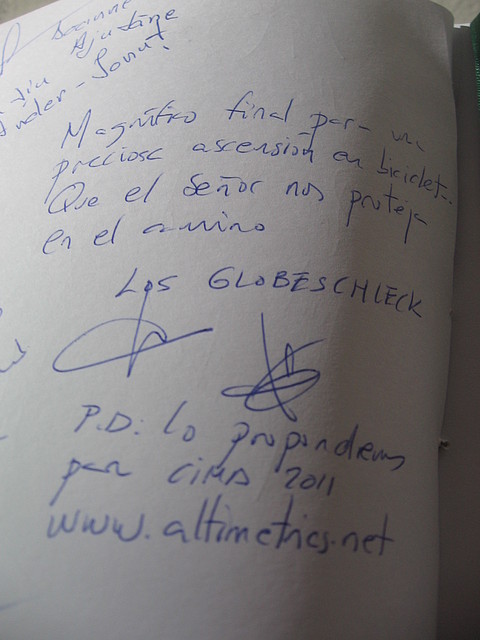 Magnífico final para una
preciosa ascensión en bicicleta.
Que el Señor nos proteja
en el camino
LOS GLOBESCHLECK
P.D: Lo propondremos
para CIMA 2011
www.altimetrics.net